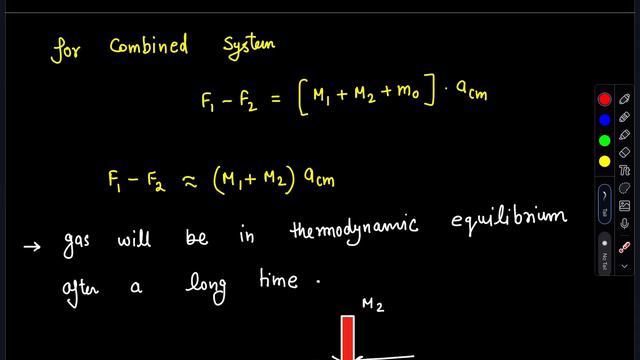 for Combined System
F₁ - F₂ = [M₁ + M₂ + m₀] · a_cm
F₁ - F₂ ≈ (M₁ + M₂) a_cm
→ gas will be in thermodynamic equilibrium
after a long time .
M₂
Tt
Tail
No Tail